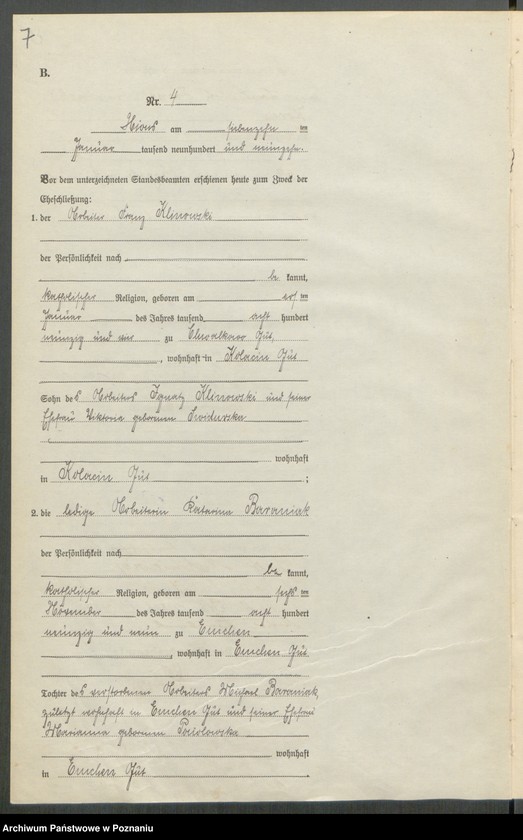 7
B.
Nr. 4
Xions am siebenzehn ten
Januar tausend neunhundert und neunzehn.
Vor dem unterzeichneten Standesbeamten erschienen heute zum Zweck der
Eheschließung:
1. der Arbeiter Franz Klinowski
der Persönlichkeit nach
be kannt,
katholischer Religion, geboren am ten
Januar des Jahres tausend acht hundert
neunzig und vier zu Chwalkowo Gut,
, wohnhaft in Kolacin Gut
Sohn des Arbeiters Ignatz Klinowski und seiner
Ehefrau Viktoria geborenen Swidurska
wohnhaft
in Kolacin Gut ;
2. die ledige Arbeiterin Katarina Baraniak
der Persönlichkeit nach
be kannt,
katholischer Religion, geboren am sechs ten
November des Jahres tausend acht hundert
neunzig und neun zu Emchen
, wohnhaft in Emchen Gut
Tochter des verstorbenen Arbeiters Michael Baraniak,
zuletzt wohnhaft in Emchen Gut und seiner Ehefrau
Marianna geborenen Pawlowska
wohnhaft
in Emchen Gut .
Archiwum Państwowe w Poznaniu